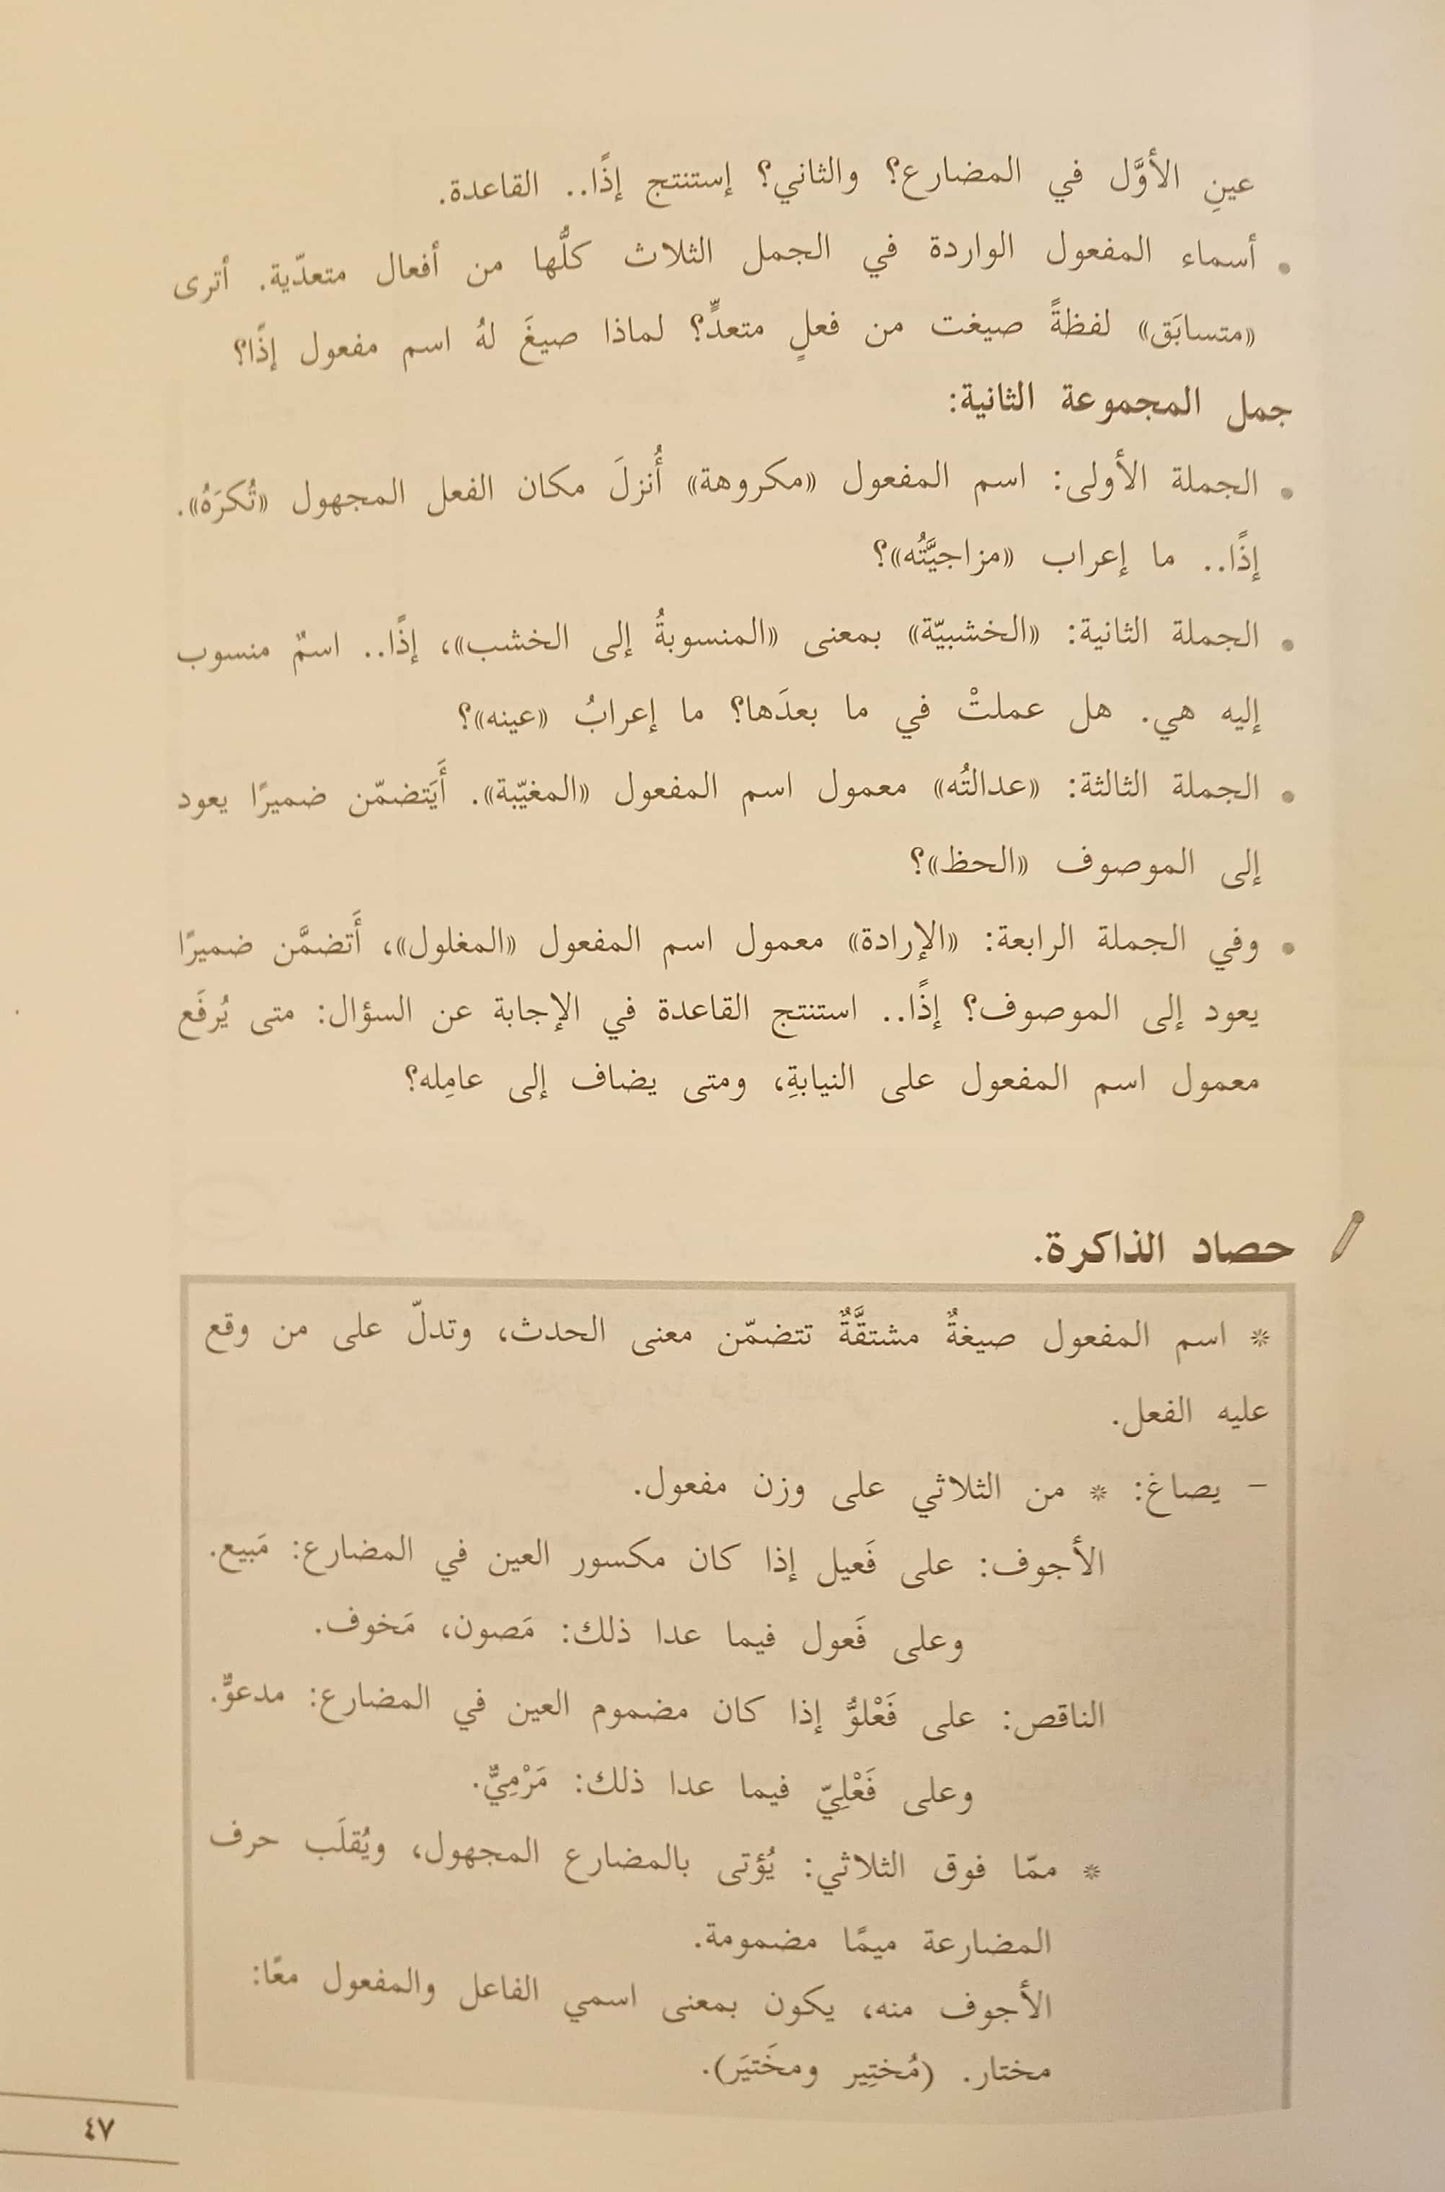 عينِ الأوَّل في المضارع؟ والثاني؟ إستنتج إذًا.. القاعدة.
• أسماء المفعول الواردة في الجمل الثلاث كلُّها من أفعال متعدّية. أترى
«متسابَق» لفظةً صيغت من فعلٍ متعدٍّ؟ لماذا صيغَ لهُ اسم مفعول إذًا؟
جمل المجموعة الثانية:
• الجملة الأولى: اسم المفعول «مكروهة» أُنزلَ مكان الفعل المجهول «تُكرَهُ».
إذًا.. ما إعراب «مزاجيَّتُه»؟
• الجملة الثانية: «الخشبيّة» بمعنى «المنسوبةُ إلى الخشب»، إذًا.. اسمٌ منسوب
إليه هي. هل عملتْ في ما بعدَها؟ ما إعرابُ «عينه»؟
• الجملة الثالثة: «عدالتُه» معمول اسم المفعول «المغيّبة». أَيَتضمّن ضميرًا يعود
إلى الموصوف «الحظ»؟
• وفي الجملة الرابعة: «الإرادة» معمول اسم المفعول «المغلول»، أَتضمَّن ضميرًا
يعود إلى الموصوف؟ إذًا.. استنتج القاعدة في الإجابة عن السؤال: متى يُرفَع
معمول اسم المفعول على النيابةِ، ومتى يضاف إلى عامِله؟
حصاد الذاكرة.
* اسم المفعول صيغةٌ مشتقَّةٌ تتضمّن معنى الحدث، وتدلّ على من وقع
عليه الفعل.
– يصاغ: * من الثلاثي على وزن مفعول.
الأجوف: على فَعيل إذا كان مكسور العين في المضارع: مَبيع.
وعلى فَعول فيما عدا ذلك: مَصون، مَخوف.
الناقص: على فَعْلوُّ إذا كان مضموم العين في المضارع: مدعوٌّ.
وعلى فَعْلِيّ فيما عدا ذلك: مَرْمِيٌّ.
* ممّا فوق الثلاثي: يُؤتى بالمضارع المجهول، ويُقلَب حرف
المضارعة ميمًا مضمومة.
الأجوف منه، يكون بمعنى اسمي الفاعل والمفعول معًا:
مختار. (مُختِير ومخَتيَر).
٤٧